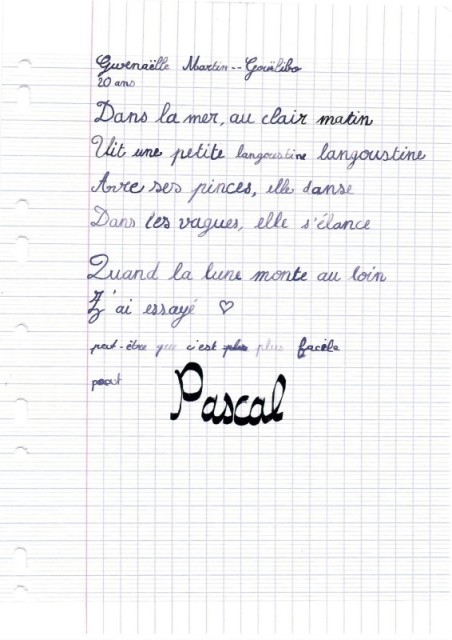 Gwenaëlle Martin--Gourlibo
20 ans
Dans la mer, au clair matin
Vit une petite langoustine langoustine
Avec ses pinces, elle danse
Dans les vagues, elle s'élance
Quand la lune monte au loin
J'ai essayé ♡
peut-être que c'est plus plus facile
pour
Pascal